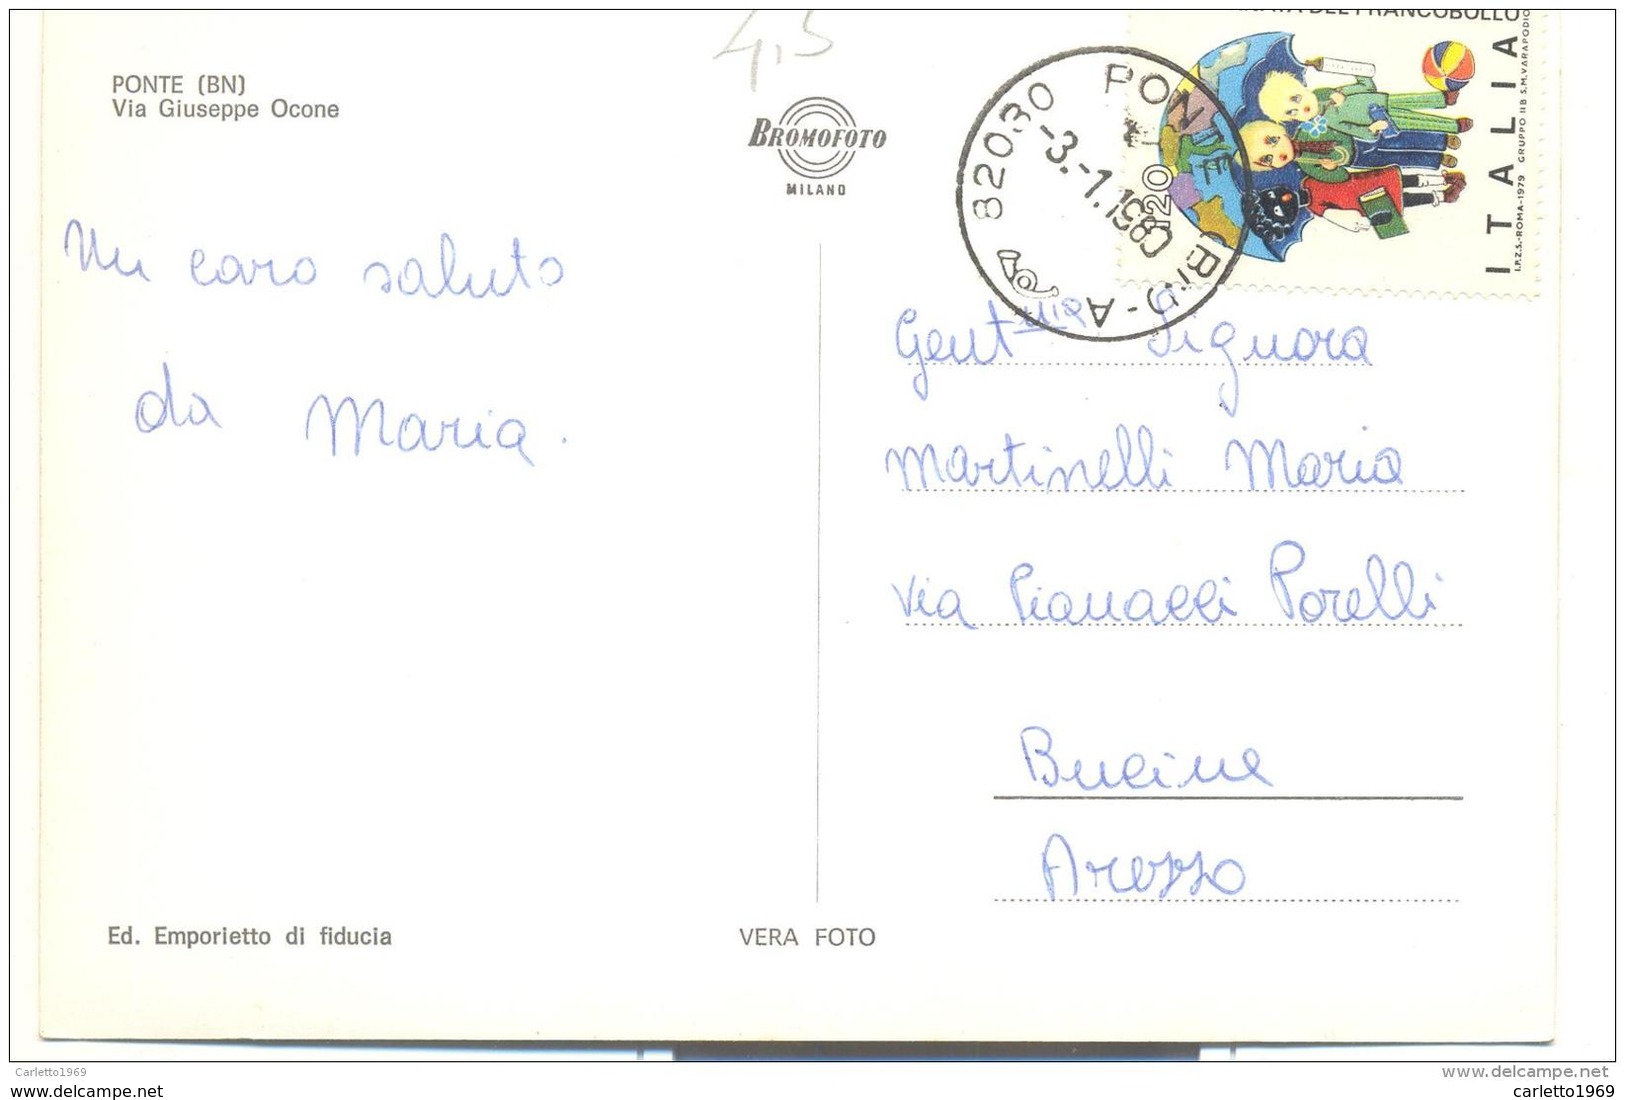 4,5
PONTE (BN)
Via Giuseppe Ocone
BROMOFOTO
MILANO
DEL FRANCOBOLLO
ITALIA
120
I.P.Z.S.-ROMA-1979 GRUPPO IIB S.M. VARAPODIO
82030 PONTE
-3.-1.1980
Un caro saluto
da Maria.
Gent.ma Signora
Martinelli Maria
Via Porelli
Bucine
Arezzo
Ed. Emporietto di fiducia
VERA FOTO
Carletto1969
www.delcampe.net
delcampe.net
carletto1969